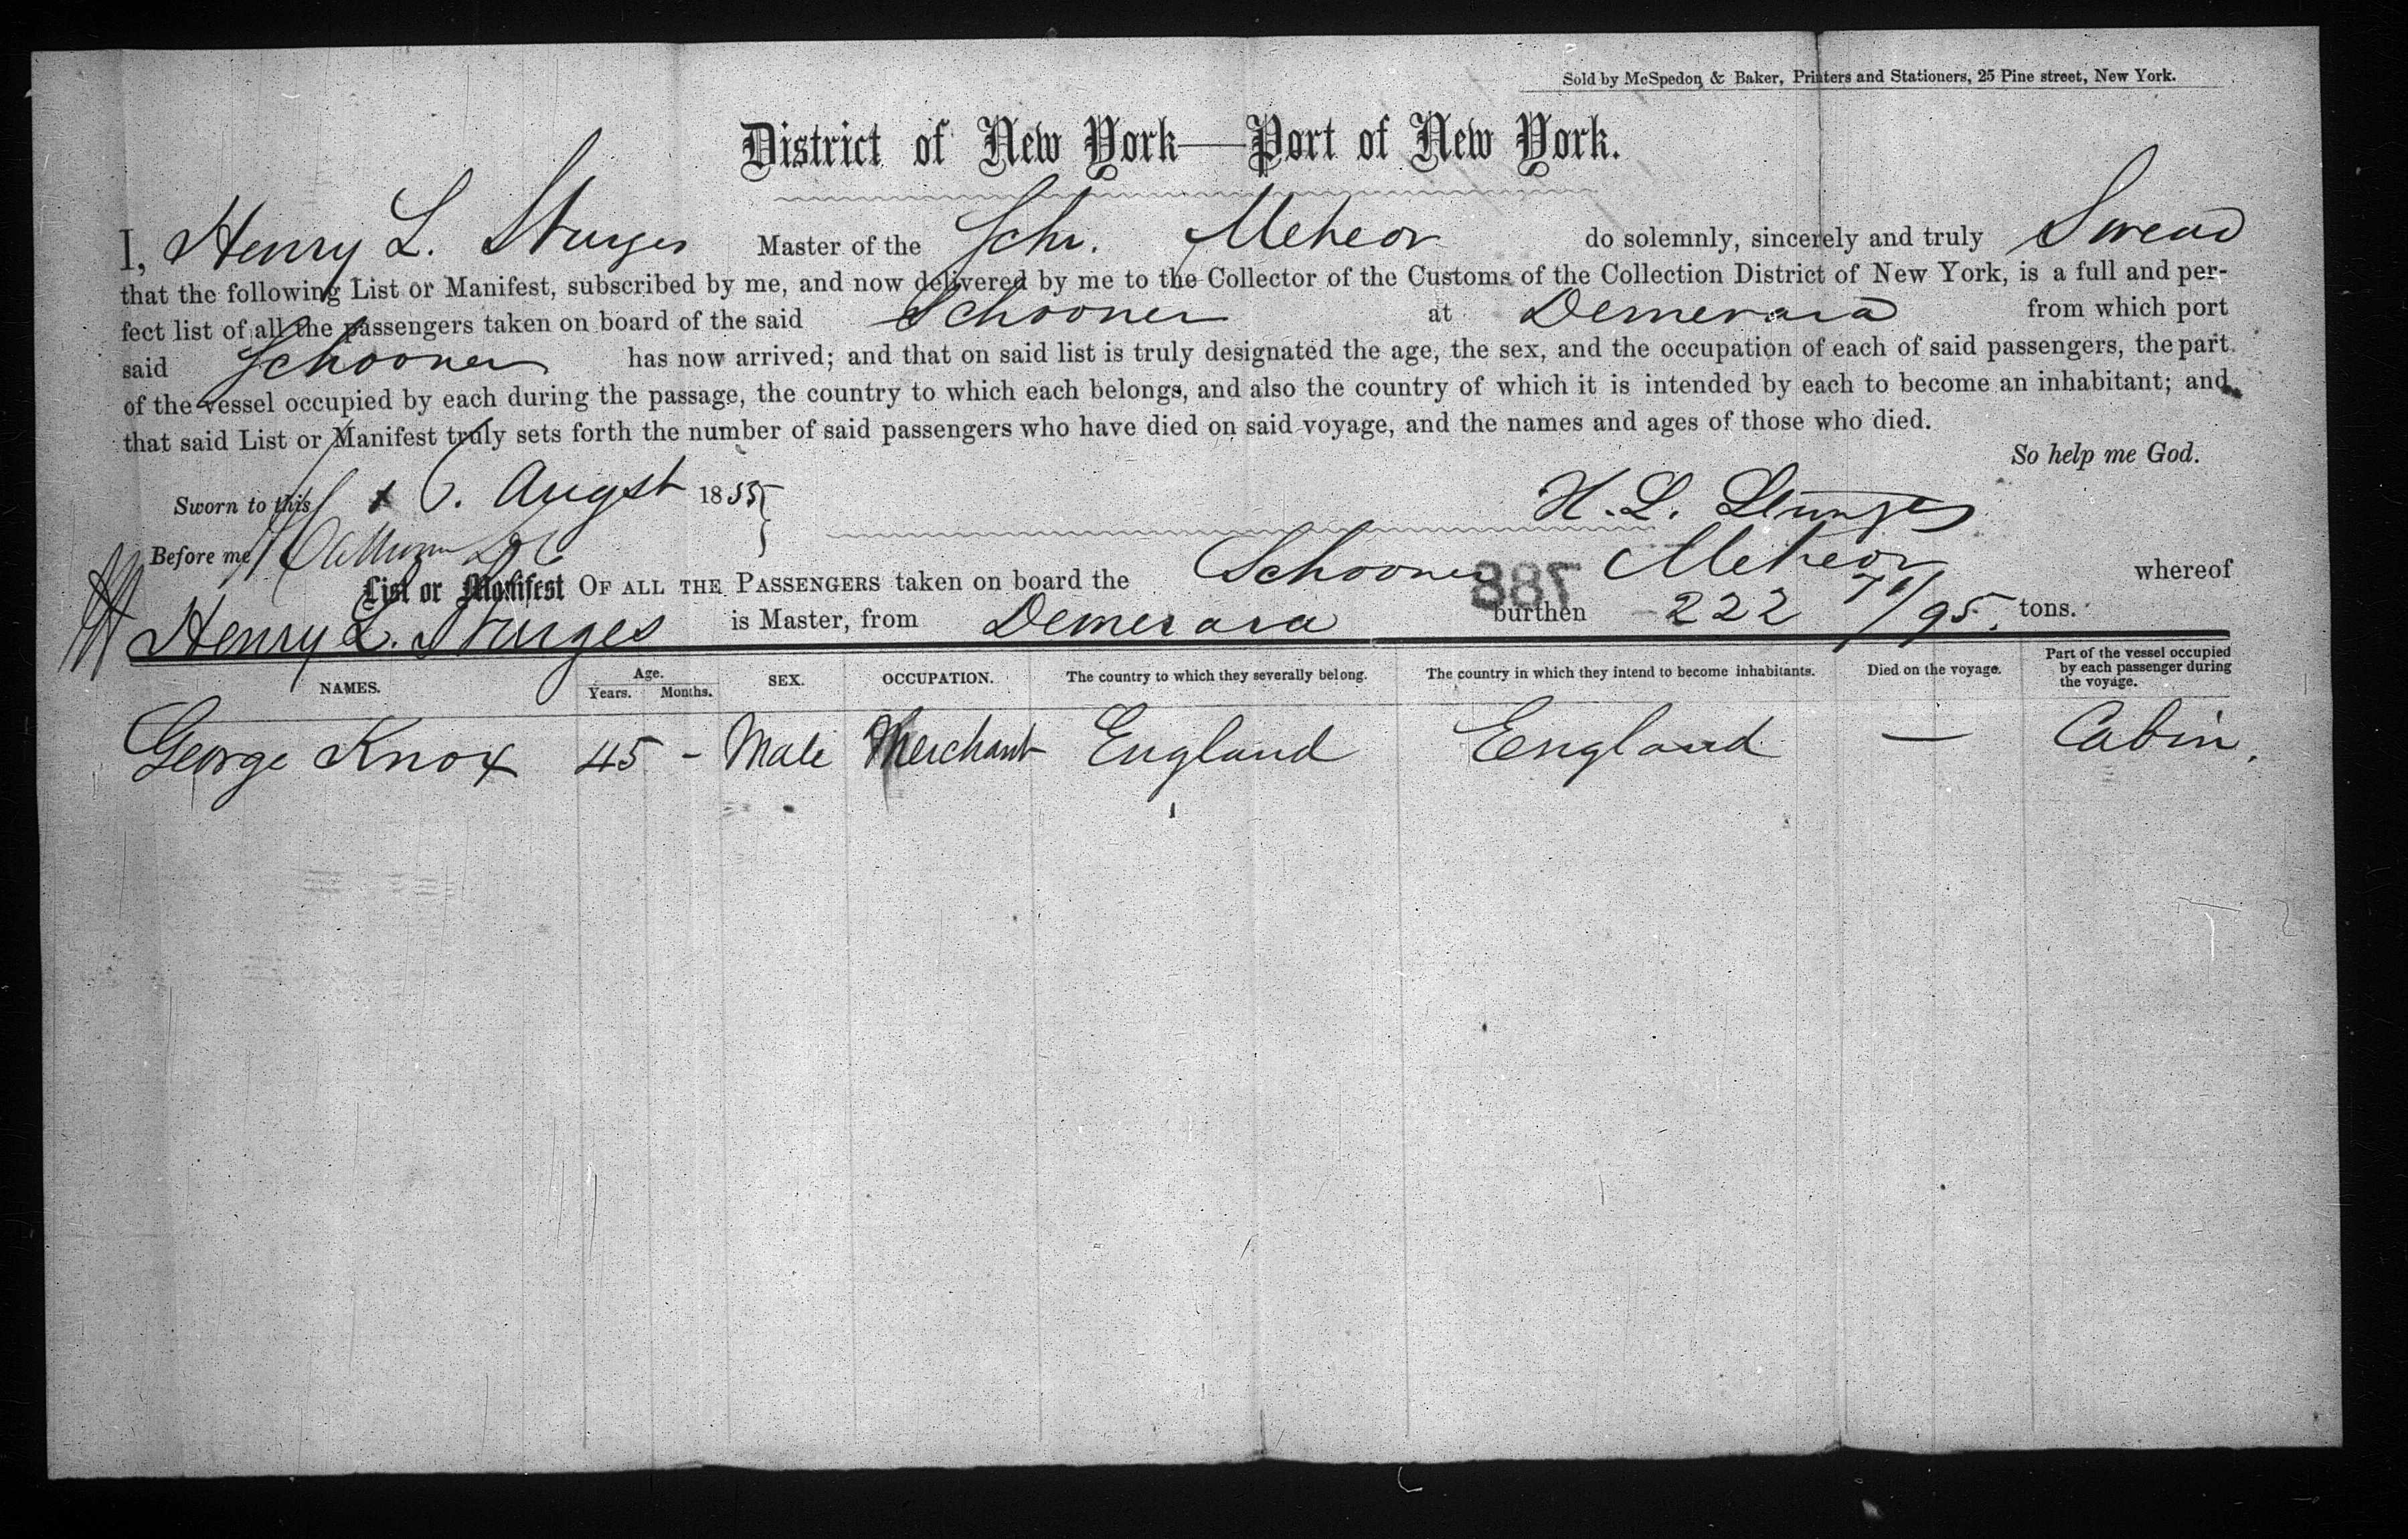 Sold by McSpedon & Baker, Printers and Stationers, 25 Pine street, New York.
District of New York—Port of New York.
I, Henry L. Sturges Master of the Schr. Meteor do solemnly, sincerely and truly Swear
that the following List or Manifest, subscribed by me, and now delivered by me to the Collector of the Customs of the Collection District of New York, is a full and per-
fect list of all the passengers taken on board of the said Schooner at Demerara from which port
said Schooner has now arrived; and that on said list is truly designated the age, the sex, and the occupation of each of said passengers, the part
of the vessel occupied by each during the passage, the country to which each belongs, and also the country of which it is intended by each to become an inhabitant; and
that said List or Manifest truly sets forth the number of said passengers who have died on said voyage, and the names and ages of those who died.
So help me God.
Sworn to this 6. Augst 1855
H. L. Sturges
Before me
List or Manifest OF ALL THE PASSENGERS taken on board the Schooner Meteor whereof
788
Henry L. Sturges is Master, from Demerara burthen 222 /95. tons.
NAMES. Age. Years. Months. SEX. OCCUPATION. The country to which they severally belong. The country in which they intend to become inhabitants. Died on the voyage. Part of the vessel occupied by each passenger during the voyage.
George Knox 45 - Male Merchant England England — Cabin.